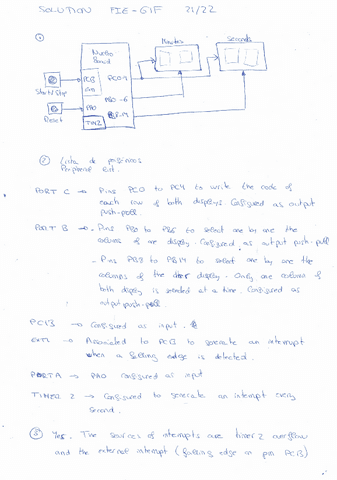 SOLUTION FIE-GIF 21/22
①
Nucleo
Board
Minutes
Seconds
PC13
PC0-4
EXTI
Start/Stop
PB0-6
PA0
Reset
PB8-14
TIM2
②
Lista de periféricos
Peripheral list.
PORT C → Pins PC0 to PC4 to write the code of
each row of both displays. Configured as output
push-pull.
PORT B → - Pins PB0 to PB6 to select one by one the
columns of one display. Configured as output push-pull
- Pins PB8 to PB14 to select one by one the
columns of the other display. Only one column of
both display is selected at a time. Configured as
output push-pull.
PC13 → Configured as input.
EXTI → Associated to PC13 to generate an interrupt
when a falling edge is detected.
PORTA → PA0 configured as input
TIMER 2 → Configured to generate an interrupt every
second.
③ Yes. The sources of interrupts are timer 2 overflow
and the external interrupt (falling edge in pin PC13)